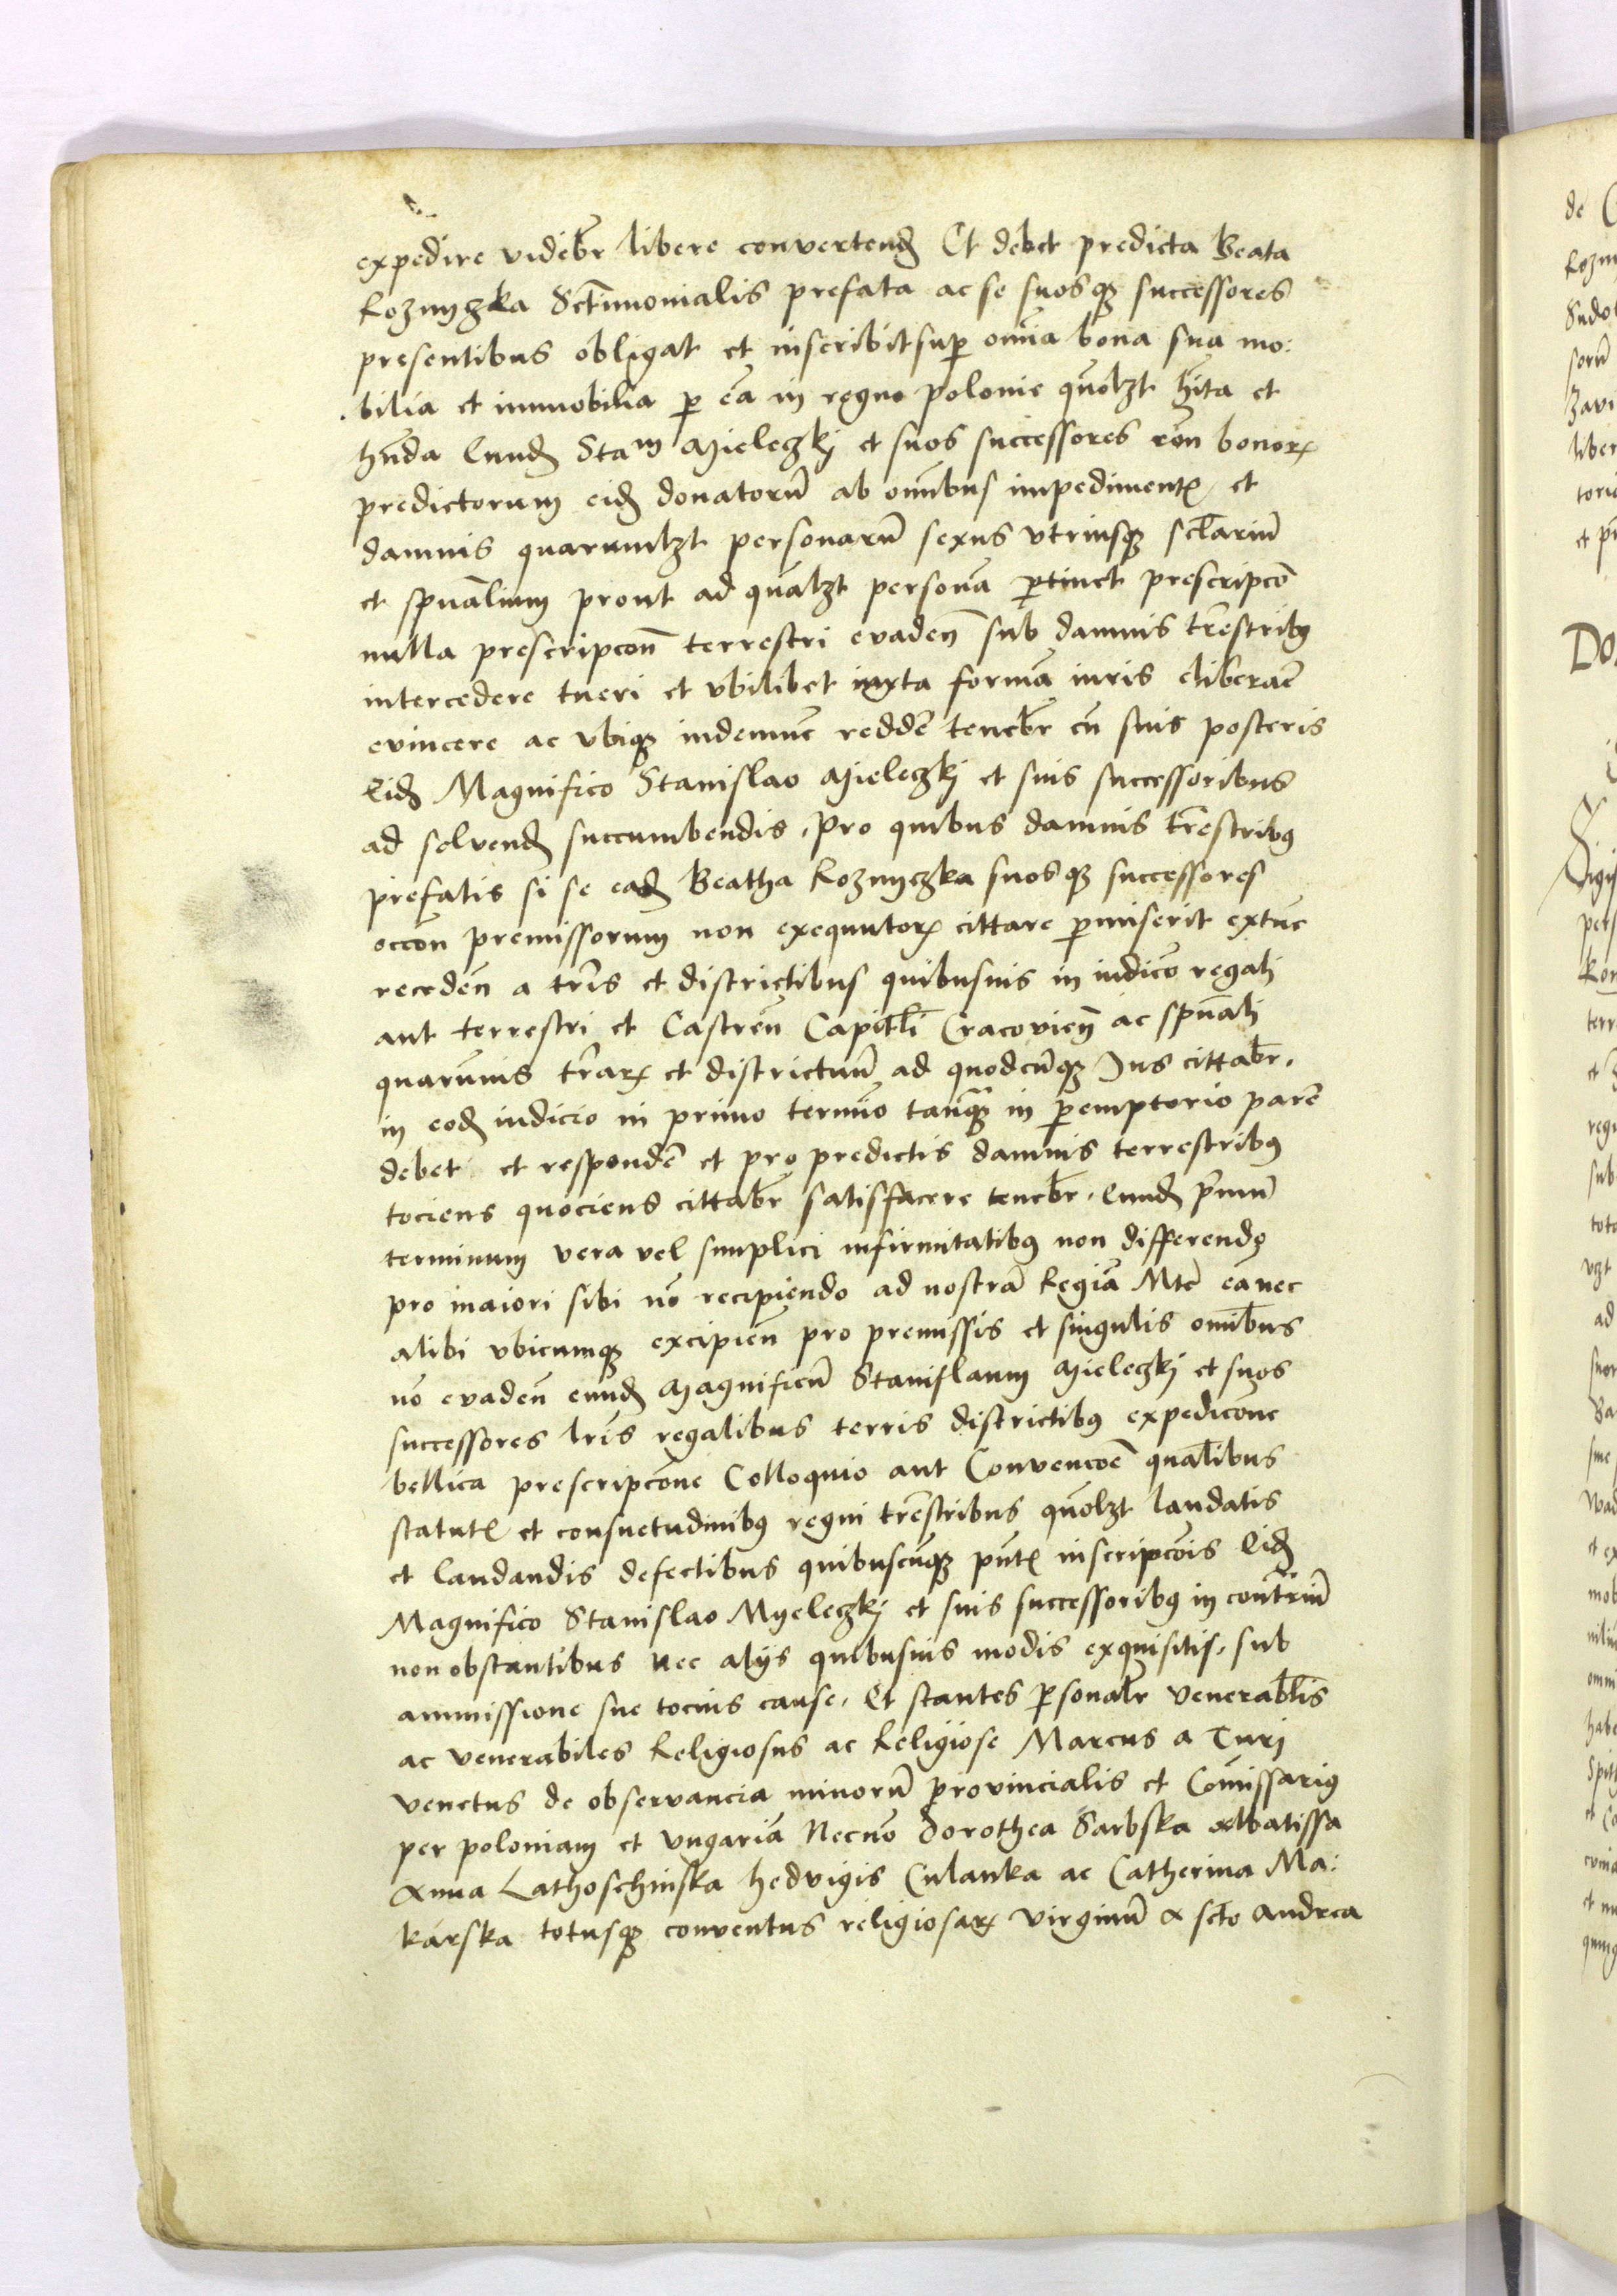 expedire videbr̄ libere convertend̄ Et debet predicta Beata
Koznyczka Sctīmonialis prefata ac se suosqꝫ successores
presentibus obligat et inscribit suꝑ om̄ia bona sua mo:
bilia et immobilia ꝑ eā in regno polonie quōlꝫt hīta et
hn̄da Eund̄ Staᵐ Mieleczkj et suos successores rōn bonorꝝ
predictorum eid̄ donatorū ab om̄ibus impedimentꝭ et
damnis quarumlꝫt personarū sexus vtriusqꝫ sclāriū
et spūalium prout ad quālꝫt personā ꝑtinet prescripcō
nulla prescripcōn terrestri evaden̄ sub damnis tr̄estribꝰ
intercedere tueri et vbilibet iuxta formā iuris eliberar̄e
evincere ac vbiqꝫ indemnē redder̄e tenebr̄ cū suis posteris
Eid̄ Magnifico Stanislao Mieleczkj et suis successoribus
ad solvend̄ succumbendis, Pro quibus damnis tr̄estribꝰ
prefatis si se ead̄ Beatha Koznyczka suosqꝫ successores
occōn premissorum non exequutorꝝ cittare ꝑmiserit extūc
receden̄ a tr̄is et districtibus quibusuis in iudicō regali
aut terrestri et Castren̄ Capitl̄i Cracovien̄ ac spūali
quarūuis tr̄arꝝ et districtuū ad quodcūqꝫ Ius cittabr̄,
in eod̄ iudicio in primo termīo tanqꝫ in ꝑemptorio parer̄e
debet et responder̄e et pro predictis damnis terrestribꝰ
tociens quociens cittabr̄ satisfacere tenebr̄, Eund̄ pr̄imū
terminum vera vel simplici infirmitatibꝰ non differendo
pro maiori sibi nō recipiendo ad nostrā Regiā Mtē eā nec
alibi vbicumqꝫ excipien̄ pro premissis et singulis om̄ibus
nō evaden̄ eund̄ Magnificū Stanislaum Mieleczkj et suos
successores lr̄is regalibus terris districtibꝰ expedicōne
bellica prescripcōne Colloquio aut Convencōe qualibus
statutꝭ et consuetudinibꝰ regni tr̄estribus quōlꝫt laudatis
et laudandis defectibus quibuscūqꝫ pn̄tꝭ inscripcōis Eid̄
Magnifico Stanislao Myeleczkj et suis successoribꝰ in contrariū
non obstantibus nec alijs quibusuis modis exquisitis, sub
ammissione sue tocius cause, Et stantes ꝑsonalr̄ venerabl̄is
ac venerabiles Religiosus ac Religiose Marcus a Turj
venetus de observancia minorū provincialis et Com̄issariꝰ
per poloniam et vngariā Necnō Dorothea Sarbska abbatissa
Anna Lathoschinska hedvigis Culanka ac Catherina Ma:
karska totusqꝫ conventus religiosarꝝ virginū a scto Andrea